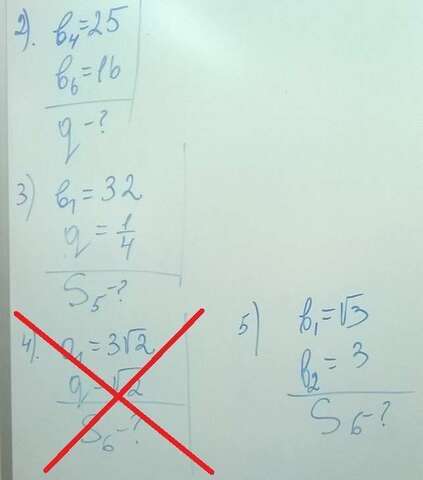 2). b₄=25
b₆=16
q-?
3) b₁=32
q=1/4
S₅-?
4). b₁=3√2
q=√2
S₆-?
5) b₁=√3
b₂=3
S₆-?